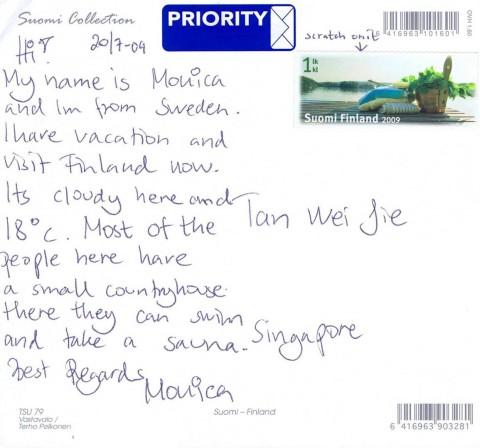 Suomi Collection
PRIORITY
OVH 1,60
6 416963 101601
Hi! 20/7-09
scratch on it
My name is Monica
and Im from Sweden.
I have vacation and
visit Finland now.
Its cloudy here and
18°c. Most of the
people here have
a small countryhouse.
there they can swim
and take a sauna.
Best Regards
Monica
1 lk
kl
Suomi Finland 2009
Tan Wei Jie
Singapore
TSU 79
Vastavalo /
Terho Pelkonen
Suomi – Finland
6 416963 903281